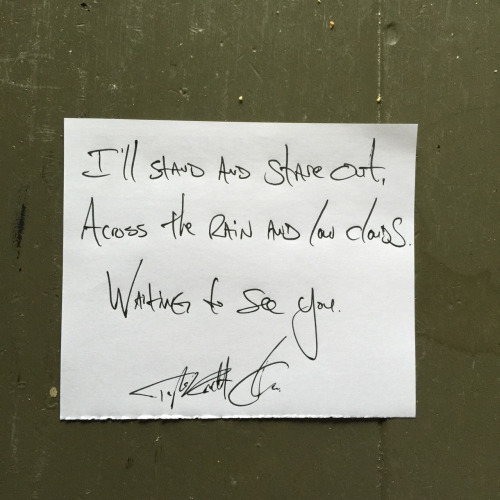 I'll STAND AND Stare out,
Across the RAIN AND low clouds.
WAITING to See you.